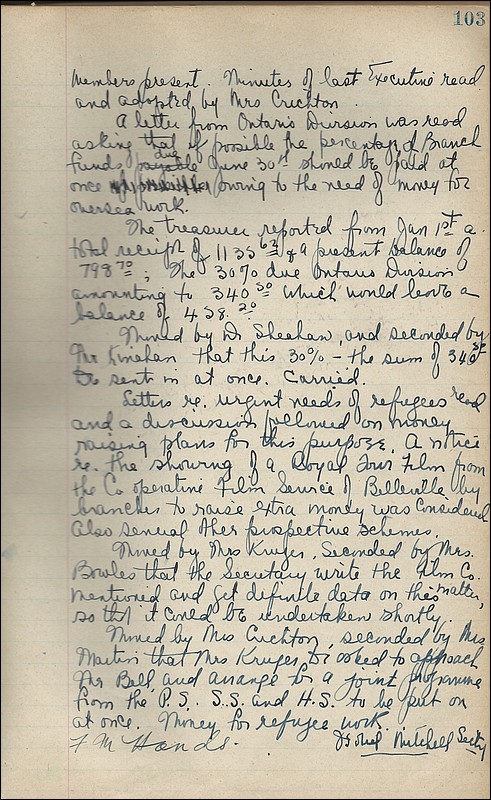 103
members present. Minutes of last Executive read
and adopted by Mrs Crichton.
A letter from Ontario Division was read
asking that if possible the percentage of Branch
funds due June 30th should be paid at
once owing to the need of money for
oversea work.
The treasurer reported from Jan 1st a
total receipt of 1135 62 & a present balance of
798 70; The 30% due Ontario Division
amounting to 340 50 which would leave a
balance of 458. 20
Moved by Dr Sheahan, and seconded by
Mr Kinahan that this 30% - the sum of 340 50
be sent in at once. Carried.
Letters re. urgent needs of refugees read
and a discussion followed on money
raising plans for this purpose. A notice
re. the showing of a Royal Tour Film from
the Co operative Film Service of Belleville by
branches to raise extra money was considered
also several other prospective schemes.
Moved by Mrs Kruger, Seconded by Mrs.
Bowles that the Secretary write the Film Co.
mentioned and get definite data on this matter,
so that it could be undertaken shortly.
Moved by Mrs Crichton, seconded by Mrs
Martin that Mrs Kruger be asked to approach
Mr Bell and arrange for a joint programme
from the P.S. S.S. and H.S. to be put on
at once. Money for refugee work.
F M Hands. Mitchell Secty